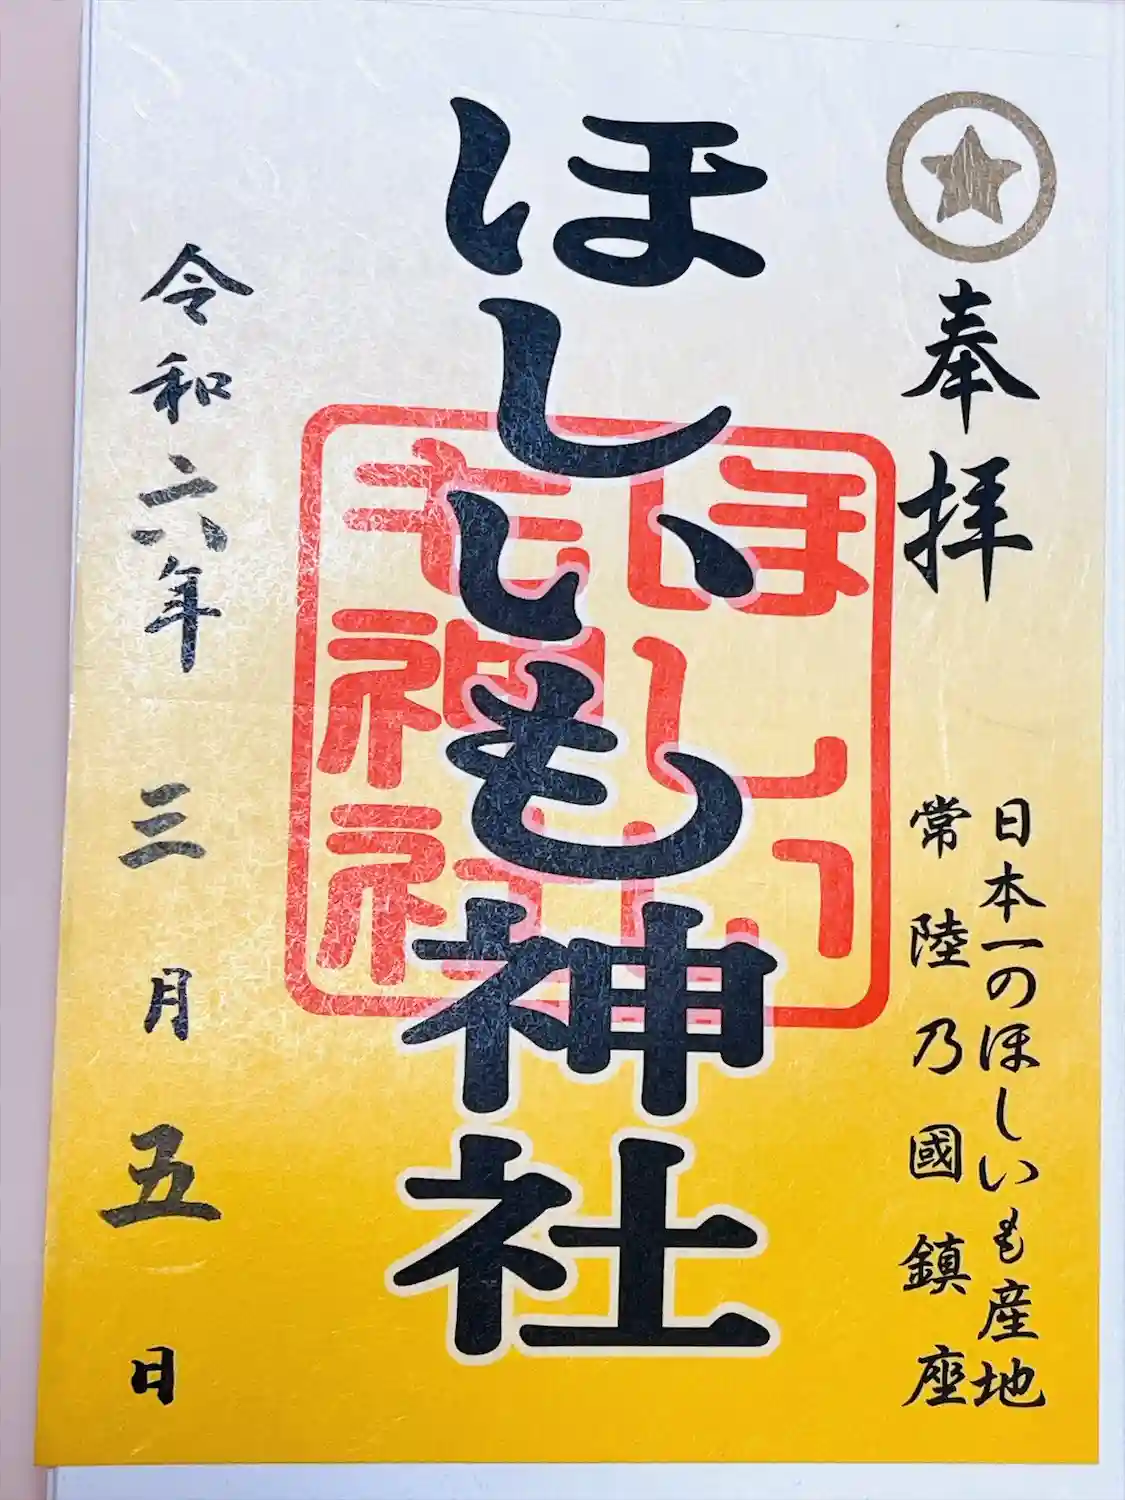 奉拝
日本一のほしいも産地
常陸乃國鎮座
ほしいも神社
ほしいも神社
令和六年三月五日